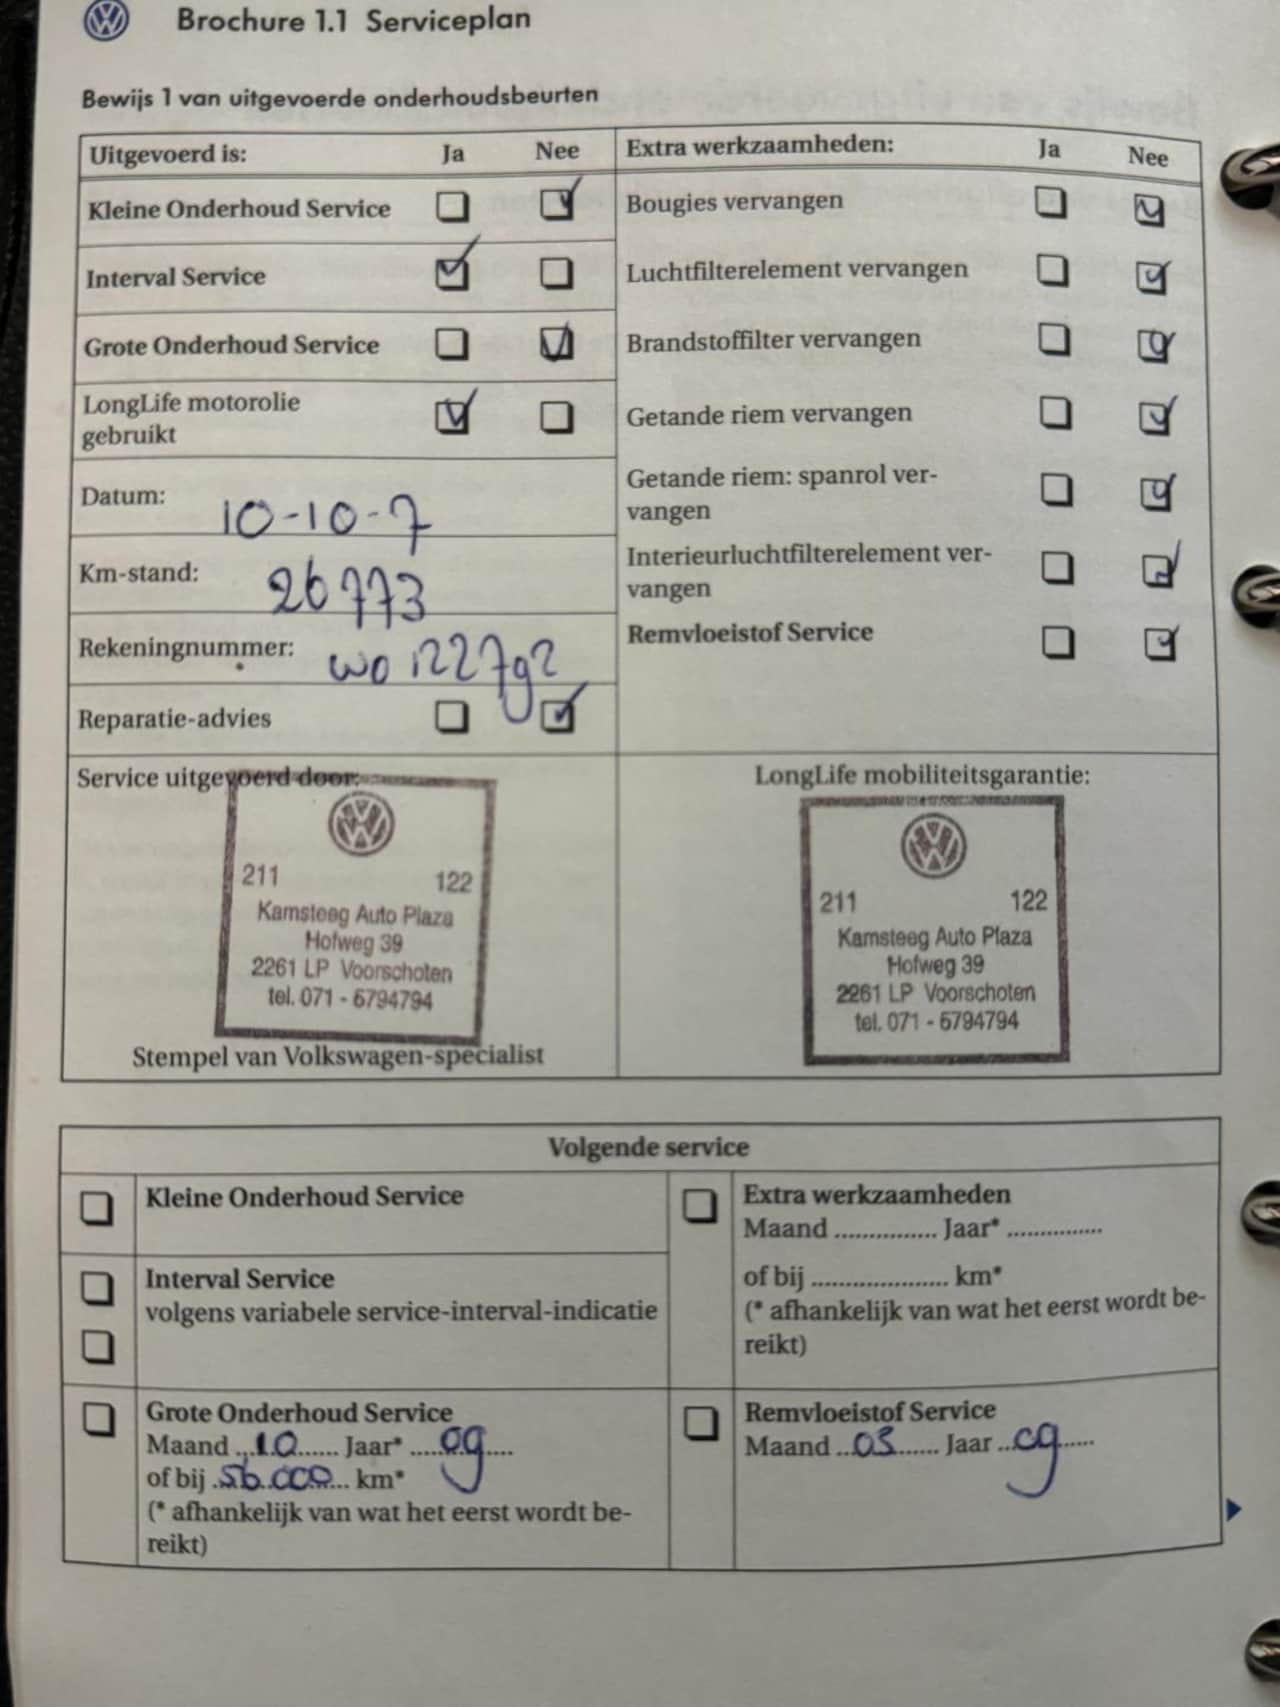 Brochure 1.1 Serviceplan
Bewijs 1 van uitgevoerde onderhoudsbeurten
Uitgevoerd is: Ja Nee
Kleine Onderhoud Service
Interval Service
Grote Onderhoud Service
LongLife motorolie
gebruikt
Datum: 10-10-7
Km-stand: 26773
Rekeningnummer: wo 122792
Reparatie-advies
Extra werkzaamheden: Ja Nee
Bougies vervangen
Luchtfilterelement vervangen
Brandstoffilter vervangen
Getande riem vervangen
Getande riem: spanrol ver-
vangen
Interieurluchtfilterelement ver-
vangen
Remvloeistof Service
Service uitgevoerd door:
211 122
Kamsteeg Auto Plaza
Hofweg 39
2261 LP Voorschoten
tel. 071 - 5794794
Stempel van Volkswagen-specialist
LongLife mobiliteitsgarantie:
211 122
Kamsteeg Auto Plaza
Hofweg 39
2261 LP Voorschoten
tel. 071 - 5794794
Volgende service
Kleine Onderhoud Service
Interval Service
volgens variabele service-interval-indicatie
Grote Onderhoud Service
Maand ...10...... Jaar* .....09....
of bij .56.000... km*
(* afhankelijk van wat het eerst wordt be-
reikt)
Extra werkzaamheden
Maand ............... Jaar* ...............
of bij .................... km*
(* afhankelijk van wat het eerst wordt be-
reikt)
Remvloeistof Service
Maand ..03...... Jaar ..09.....